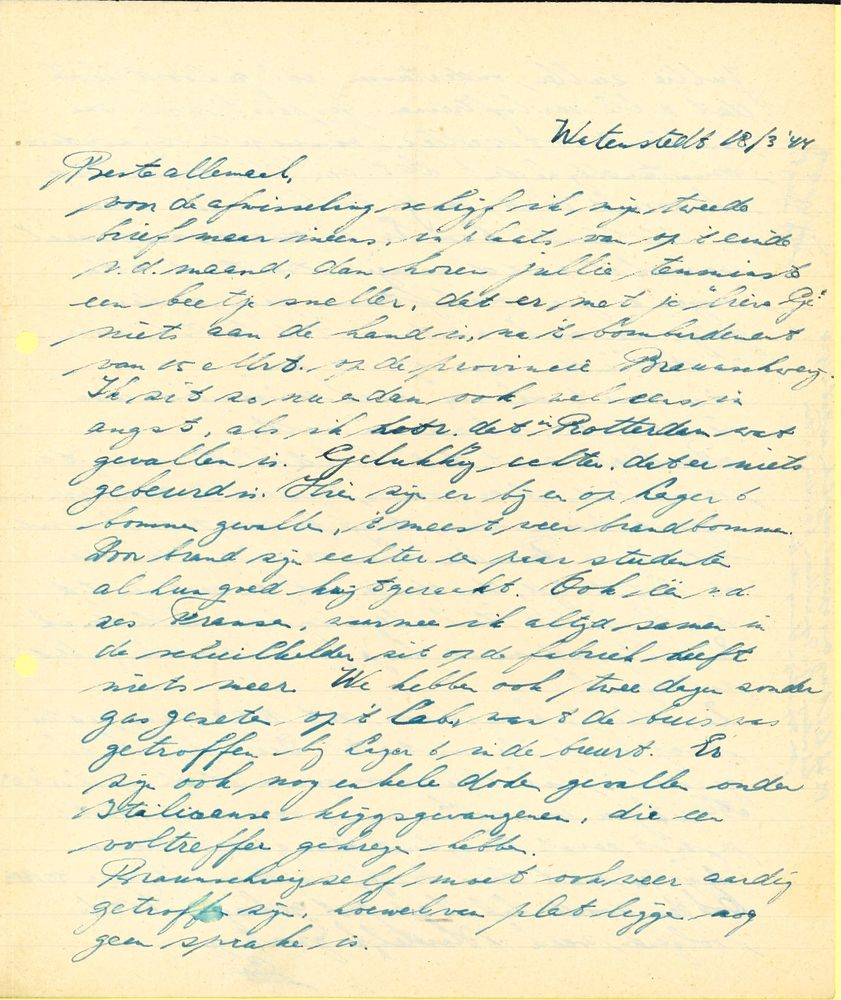 Watenstedt 18/3 '44
Beste allemaal,
voor de afwisseling schrijf ik mijn tweede
brief maar ineens, in plaats van op 't einde
v.d. maand, dan horen jullie tenminste
een beetje sneller, dat er met je "lieve Gé"
niets aan de hand is, na 't bombardement
van 15 Mrt. op de provincie Braunschweig.
Ik zit zo nu en dan ook wel eens in
angst, als ik hoor dat in Rotterdam wat
gevallen is. Gelukkig echter, dat er niets
gebeurd is. Hier zijn er bij en op Lager 6
bommen gevallen, 't meest weer brandbommen.
Door brand zijn echter een paar studenten
al hun goed kwijtgeraakt. Ook één v.d.
zes Fransen, waarmee ik altijd samen in
de schuilkelder zit op de fabriek heeft
niets meer. We hebben ook twee dagen zonder
gas gezeten op 't Lab. want de buis was
getroffen bij Lager 6 in de buurt. Er
zijn ook nog enkele doden gevallen onder
Italiaanse krijgsgevangenen, die een
voltreffer gekregen hebben.
Braunschweig zelf moet ook weer aardig
getroffen zijn, hoewel van plat liggen nog
geen sprake is.